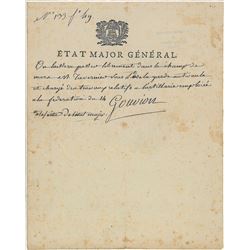 N.° 133. f.° 49
ÉTAT MAJOR GÉNÉRAL
On laissera passer librement dans le champ de
mars M. Tavernier sous de la garde nationale
et chargé des travaux relatifs a l'artillerie employée
à la fédération du 14
Gouvion
major